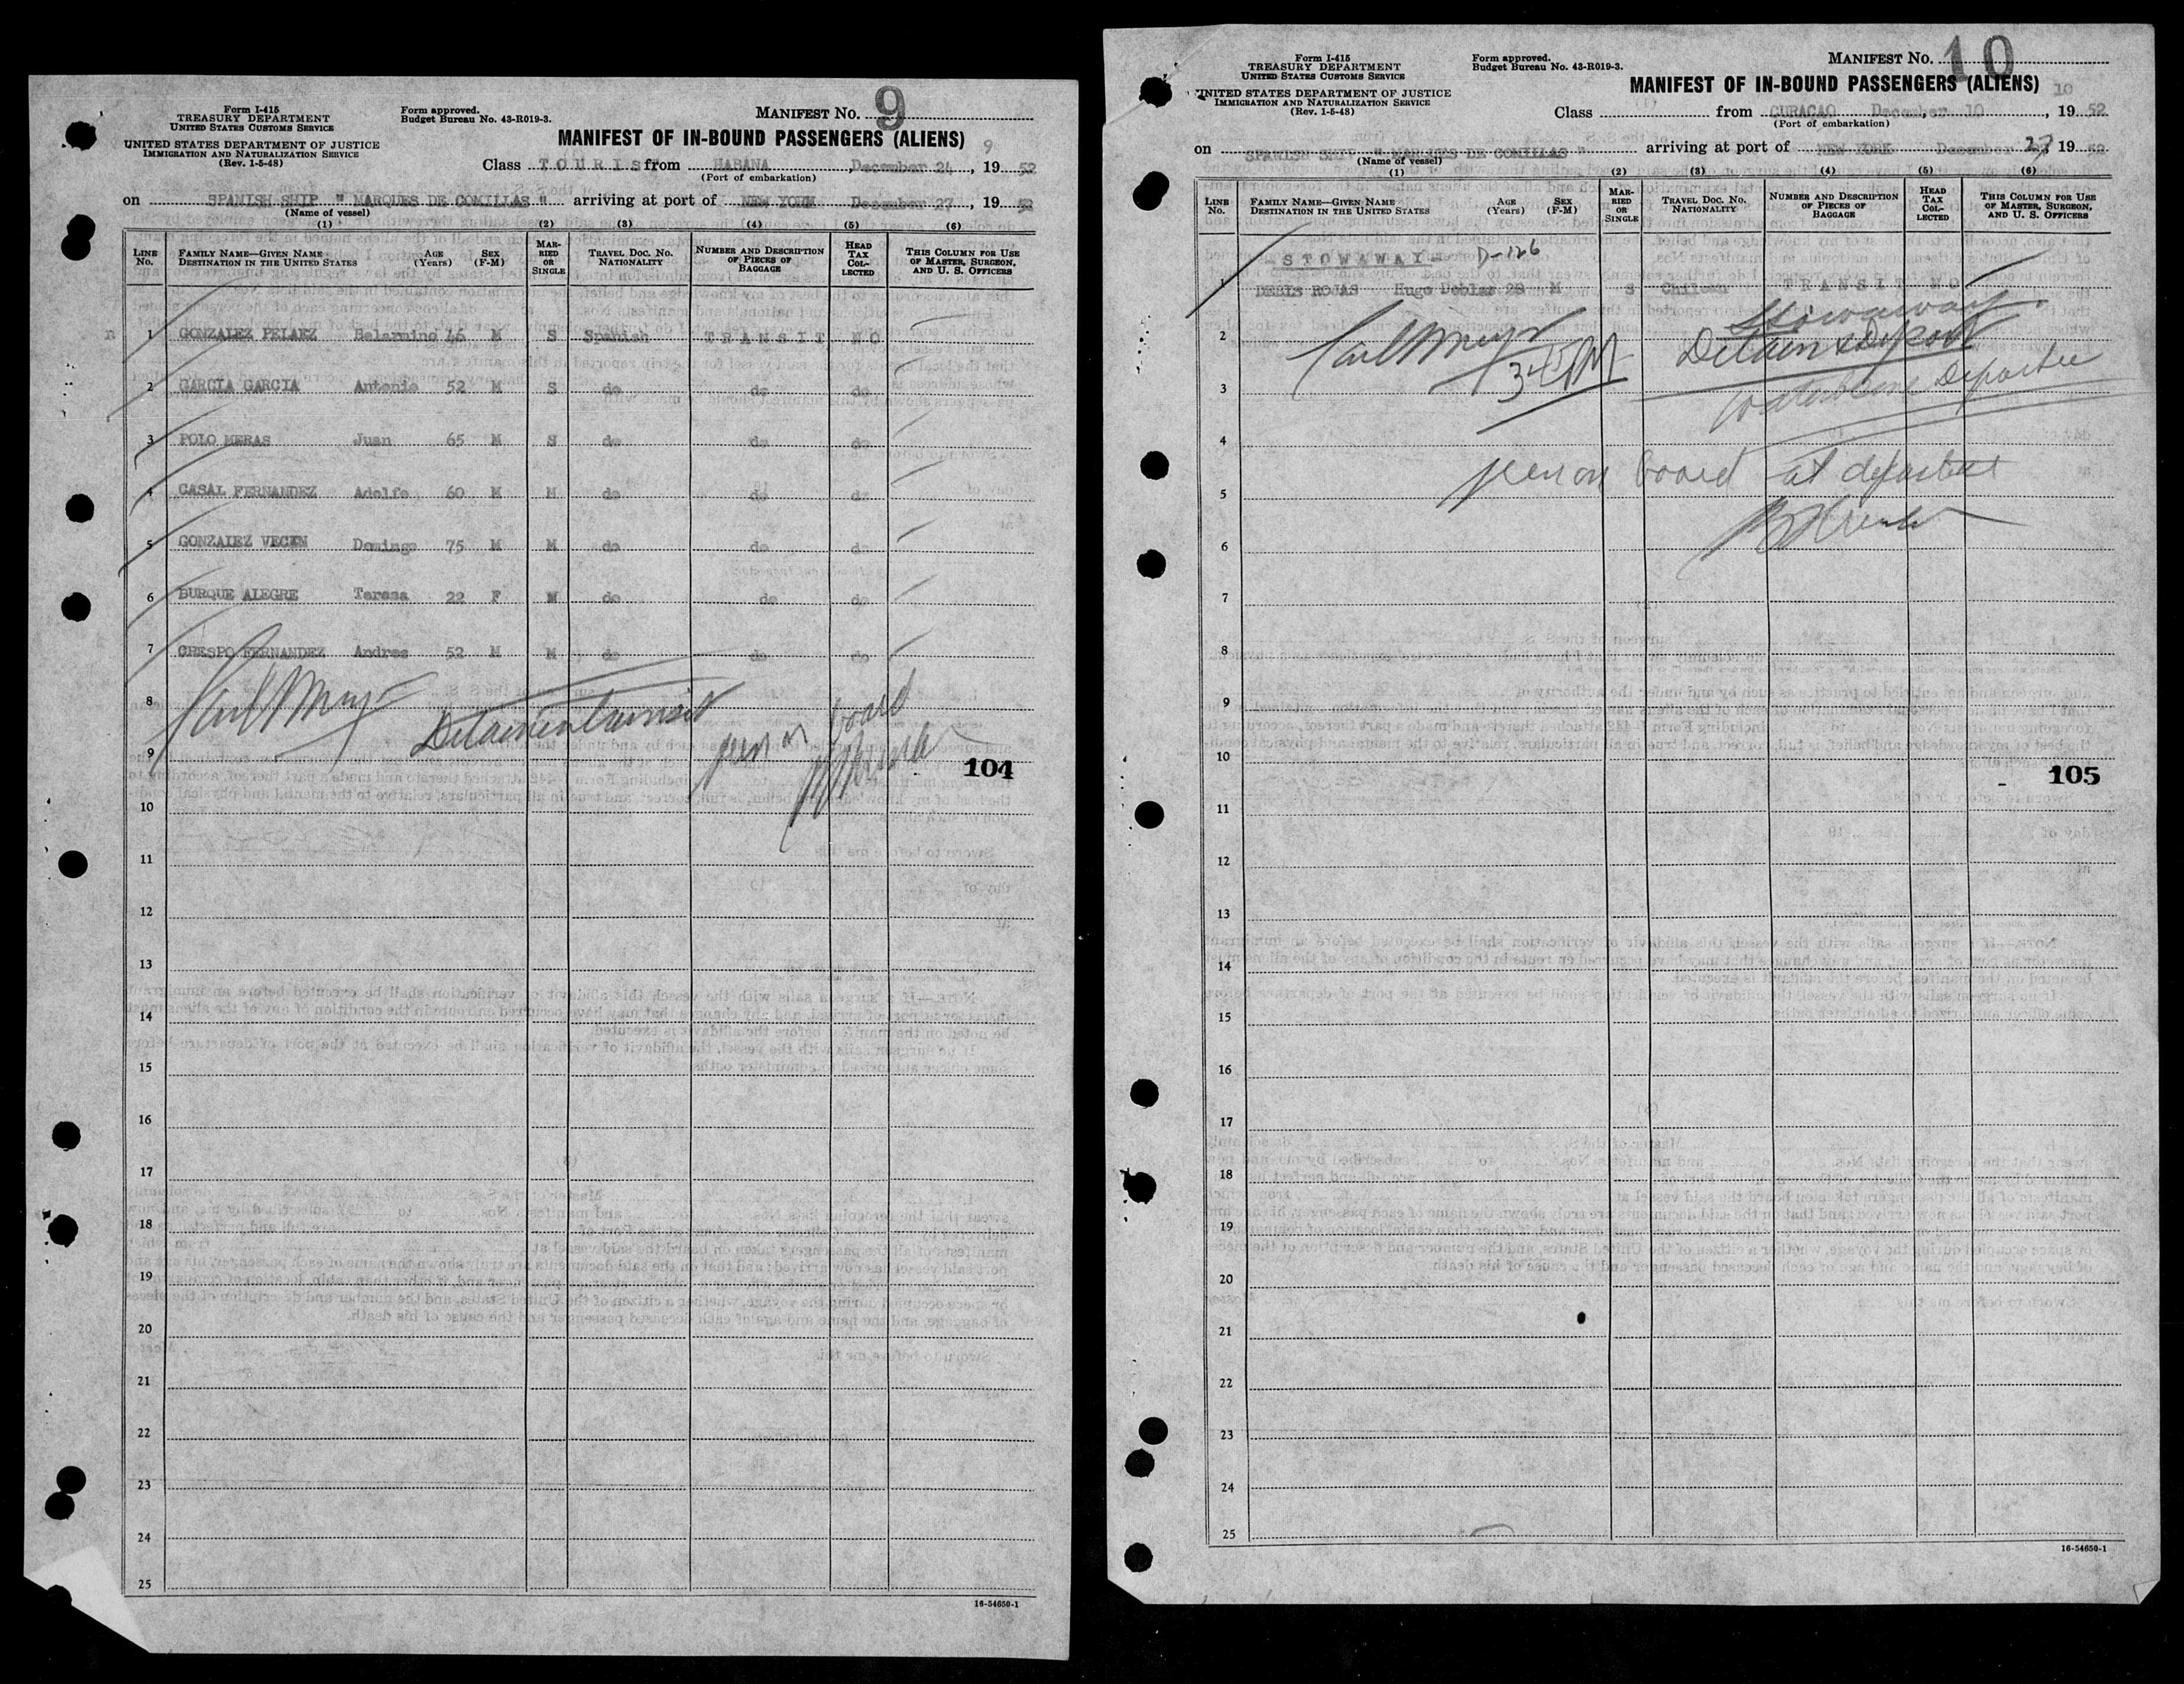 Form I-415
TREASURY DEPARTMENT
UNITED STATES CUSTOMS SERVICE
UNITED STATES DEPARTMENT OF JUSTICE
IMMIGRATION AND NATURALIZATION SERVICE
(Rev. 1-5-48)
Form approved.
Budget Bureau No. 43-R019-3.
MANIFEST No. 9
MANIFEST OF IN-BOUND PASSENGERS (ALIENS)
9
Class TOURIST from HABANA, December 24, 1952
(Port of embarkation)
on SPANISH SHIP " MARQUES DE COMILLAS " arriving at port of NEW YORK December 27, 1952
(Name of vessel)
(1) (2) (3) (4) (5) (6)
LINE No. FAMILY NAME—GIVEN NAME DESTINATION IN THE UNITED STATES AGE (Years) SEX (F-M) MARRIED OR SINGLE TRAVEL DOC. No. NATIONALITY NUMBER AND DESCRIPTION OF PIECES OF BAGGAGE HEAD TAX COLLECTED THIS COLUMN FOR USE OF MASTER, SURGEON, AND U. S. OFFICERS
1 GONZALEZ PELAEZ Belarmino 46 M S Spanish TRANSIT NO
2 GARCIA GARCIA Antonio 52 M S do do do
3 POLO MERAS Juan 65 M S do do do
4 CASAL FERNANDEZ Adolfo 60 M M do do do
5 GONZALEZ Domingo 75 M M do do do
6 BURQUE ALEGRE Teresa 22 F M do do do
7 CRESPO FERNANDEZ Andres 52 M M do do do
8
9
on board
104
10
11
12
13
14
15
16
17
18
19
20
21
22
23
24
25
16-54650-1
Form I-415
TREASURY DEPARTMENT
UNITED STATES CUSTOMS SERVICE
UNITED STATES DEPARTMENT OF JUSTICE
IMMIGRATION AND NATURALIZATION SERVICE
(Rev. 1-5-48)
Form approved.
Budget Bureau No. 43-R019-3.
MANIFEST No. 10
MANIFEST OF IN-BOUND PASSENGERS (ALIENS)
10
Class from CURACAO December 10, 1952
(Port of embarkation)
on SPANISH SHIP " MARQUES DE COMILLAS " arriving at port of NEW YORK December 27, 1952
(Name of vessel)
(1) (2) (3) (4) (5) (6)
LINE No. FAMILY NAME—GIVEN NAME DESTINATION IN THE UNITED STATES AGE (Years) SEX (F-M) MARRIED OR SINGLE TRAVEL DOC. No. NATIONALITY NUMBER AND DESCRIPTION OF PIECES OF BAGGAGE HEAD TAX COLLECTED THIS COLUMN FOR USE OF MASTER, SURGEON, AND U. S. OFFICERS
STOWAWAY D-126
1 ROJAS Hugo 28 M S Chilean TRANSIT NO
Stowaway
2 Detain & Deport
3
4
on board at departure
5
6
7
8
9
10
105
11
12
13
14
15
16
17
18
19
20
21
22
23
24
25
16-54650-1